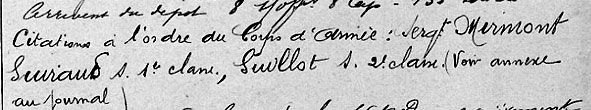 Arrivent du depot 8
Citations à l'ordre du Corps d'Armée: Sergt Mermont
Guiraud S. 1e classe, Guillot S. 2e classe. (Voir annexe
au journal)